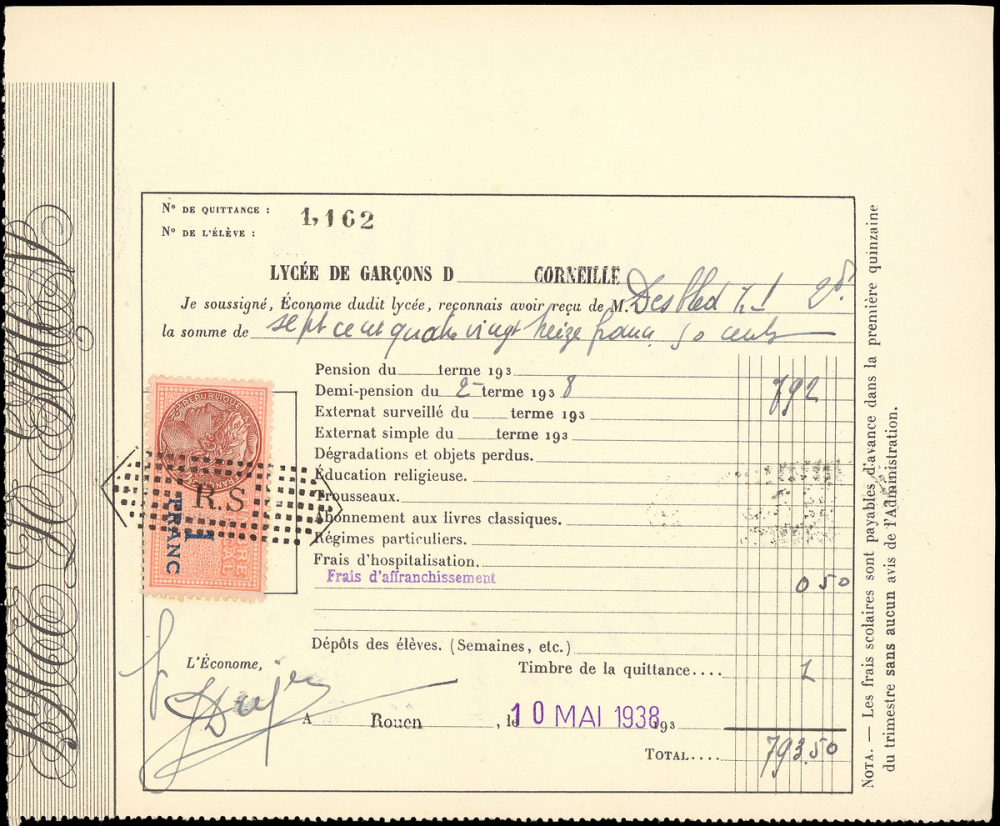 N° DE QUITTANCE : 1,162
N° DE L'ÉLÈVE :
LYCÉE DE GARÇONS D CORNEILLE
Je soussigné, Économe dudit lycée, reconnais avoir reçu de M.
la somme de sept cent quatre vingt treize francs 50 cents
Pension du terme 193
Demi-pension du 2e terme 1938 792
Externat surveillé du terme 193
Externat simple du terme 193
Dégradations et objets perdus.
Éducation religieuse.
Trousseaux.
Abonnement aux livres classiques.
Régimes particuliers.
Frais d'hospitalisation.
Frais d'affranchissement 0 50
Dépôts des élèves. (Semaines, etc.)
Timbre de la quittance.... 1
L'Économe,
A Rouen, le 10 MAI 1938 193
TOTAL.... 793.50
R.S
1
FRANC
NOTA. — Les frais scolaires sont payables d'avance dans la première quinzaine
du trimestre sans aucun avis de l'Administration.